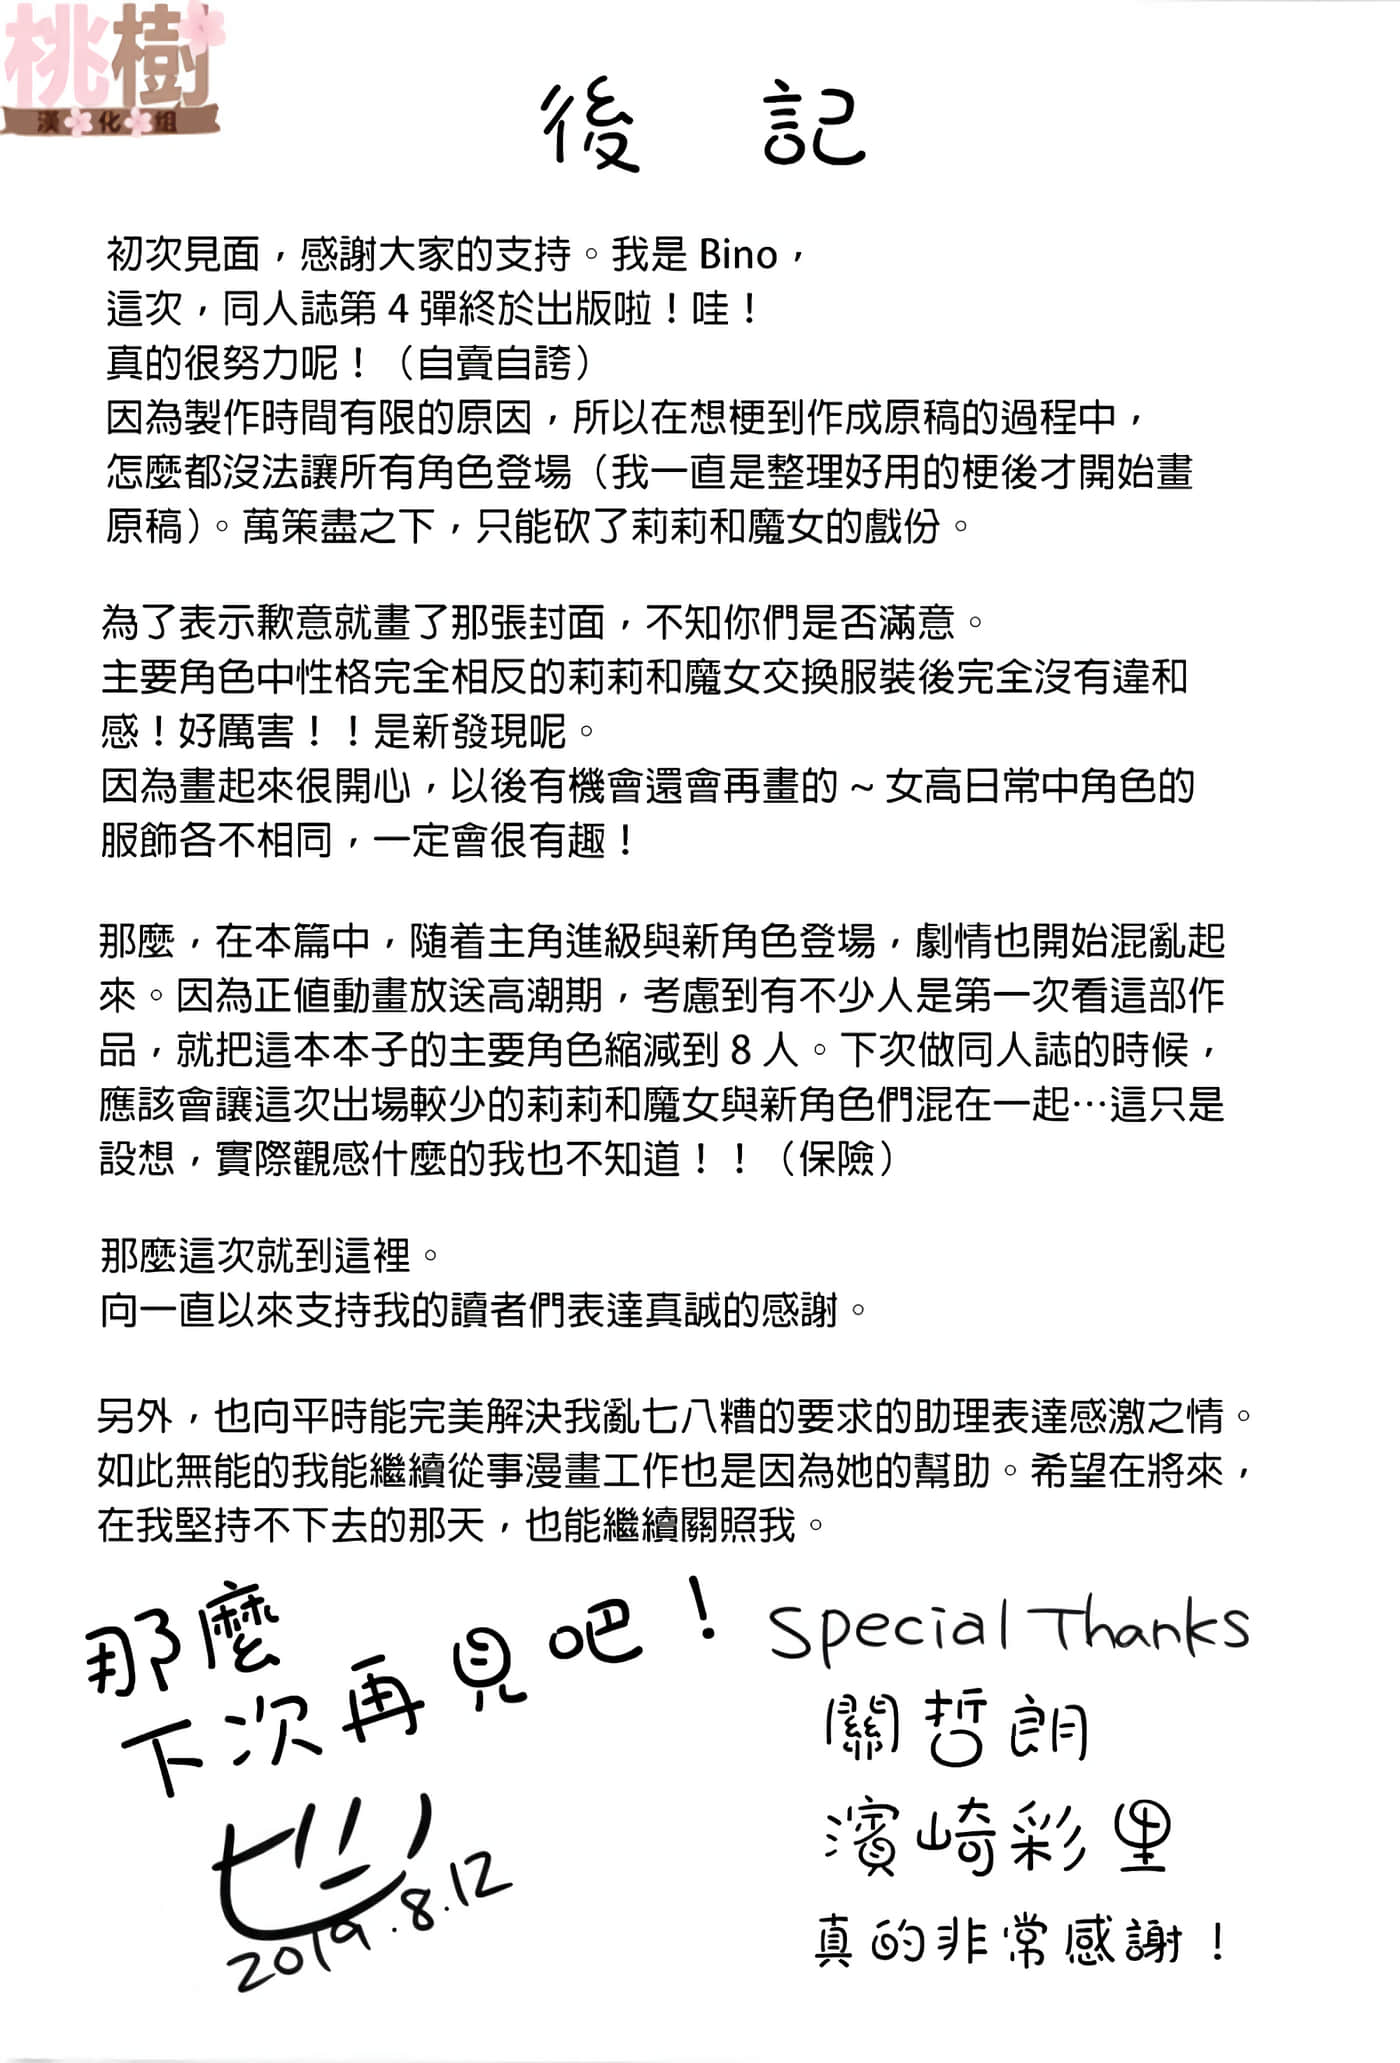 桃樹
漢化组
後記
初次見面，感謝大家的支持。我是 Bino，
這次，同人誌第 4 彈終於出版啦！哇！
真的很努力呢！（自賣自誇）
因為製作時間有限的原因，所以在想梗到作成原稿的過程中，
怎麼都沒法讓所有角色登場（我一直是整理好用的梗後才開始畫
原稿）。萬策盡之下，只能砍了莉莉和魔女的戲份。
為了表示歉意就畫了那張封面，不知你們是否滿意。
主要角色中性格完全相反的莉莉和魔女交換服裝後完全沒有違和
感！好厲害！！是新發現呢。
因為畫起來很開心，以後有機會還會再畫的 ~ 女高日常中角色的
服飾各不相同，一定會很有趣！
那麼，在本篇中，隨着主角進級與新角色登場，劇情也開始混亂起
來。因為正值動畫放送高潮期，考慮到有不少人是第一次看這部作
品，就把這本本子的主要角色縮減到 8 人。下次做同人誌的時候，
應該會讓這次出場較少的莉莉和魔女與新角色們混在一起…這只是
設想，實際觀感什麼的我也不知道！！（保險）
那麼這次就到這裡。
向一直以來支持我的讀者們表達真誠的感謝。
另外，也向平時能完美解決我亂七八糟的要求的助理表達感激之情。
如此無能的我能繼續從事漫畫工作也是因為她的幫助。希望在將來，
在我堅持不下去的那天，也能繼續關照我。
那麼
下次再見吧！
2019.8.12
Special Thanks
關哲朗
濱崎彩里
真的非常感謝！